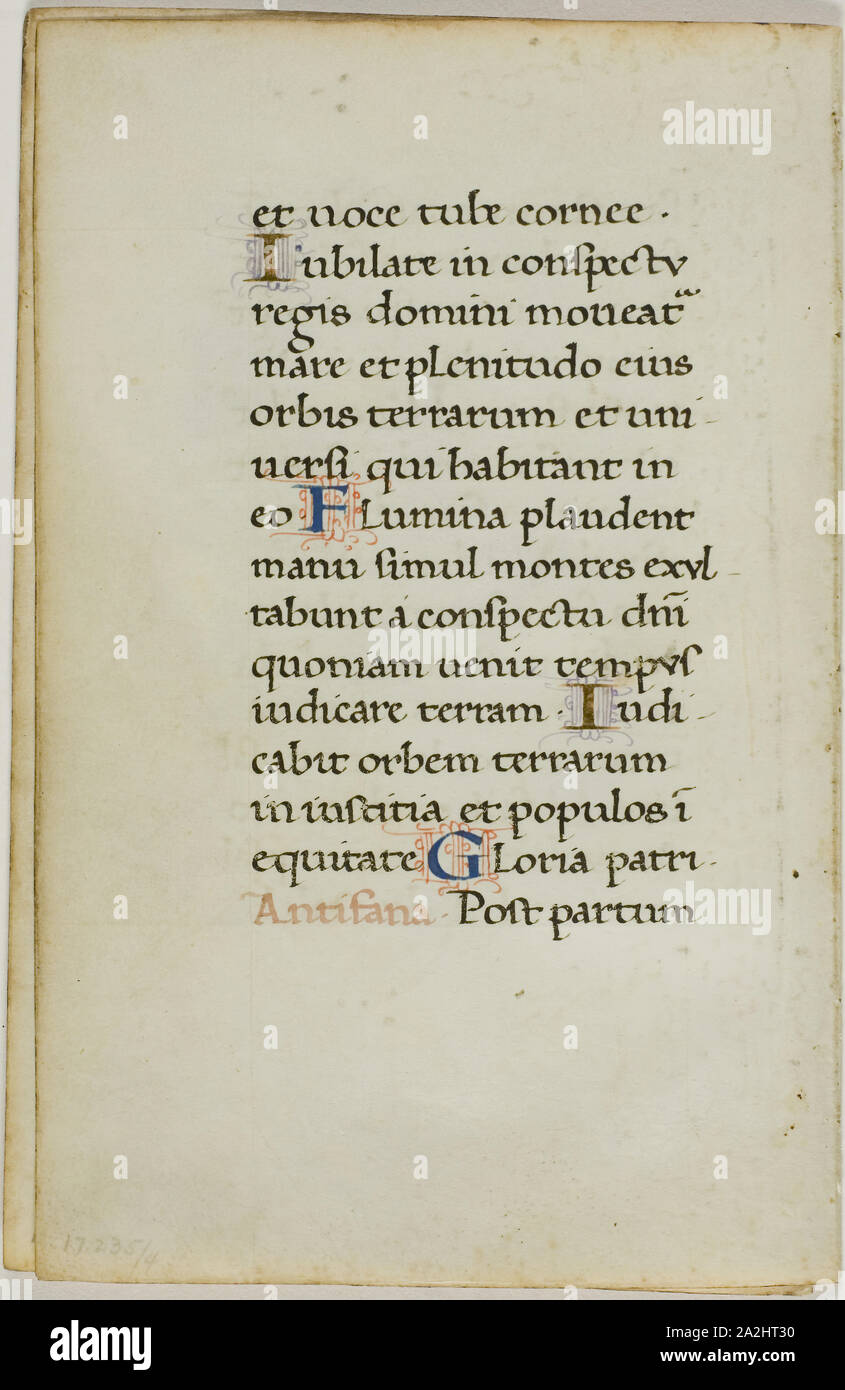 et uoce tube cornee ·
Iubilate in conſpectv
regis domini moueat̄
mare et plenitudo eius
orbis terrarum et uni-
uerſi qui habitant in
eo FLumina plaudent
manu ſimul montes exvl-
tabunt a conſpectu dn̄i
quoniam uenit tempvſ
iudicare terram · Iudi-
cabit orbem terrarum
in iuſtitia et populos ī
equitate GLoria patri ·
Antifana · Poſt partum
17.235/4
alamy
Image ID: 2A2HT30
www.alamy.com